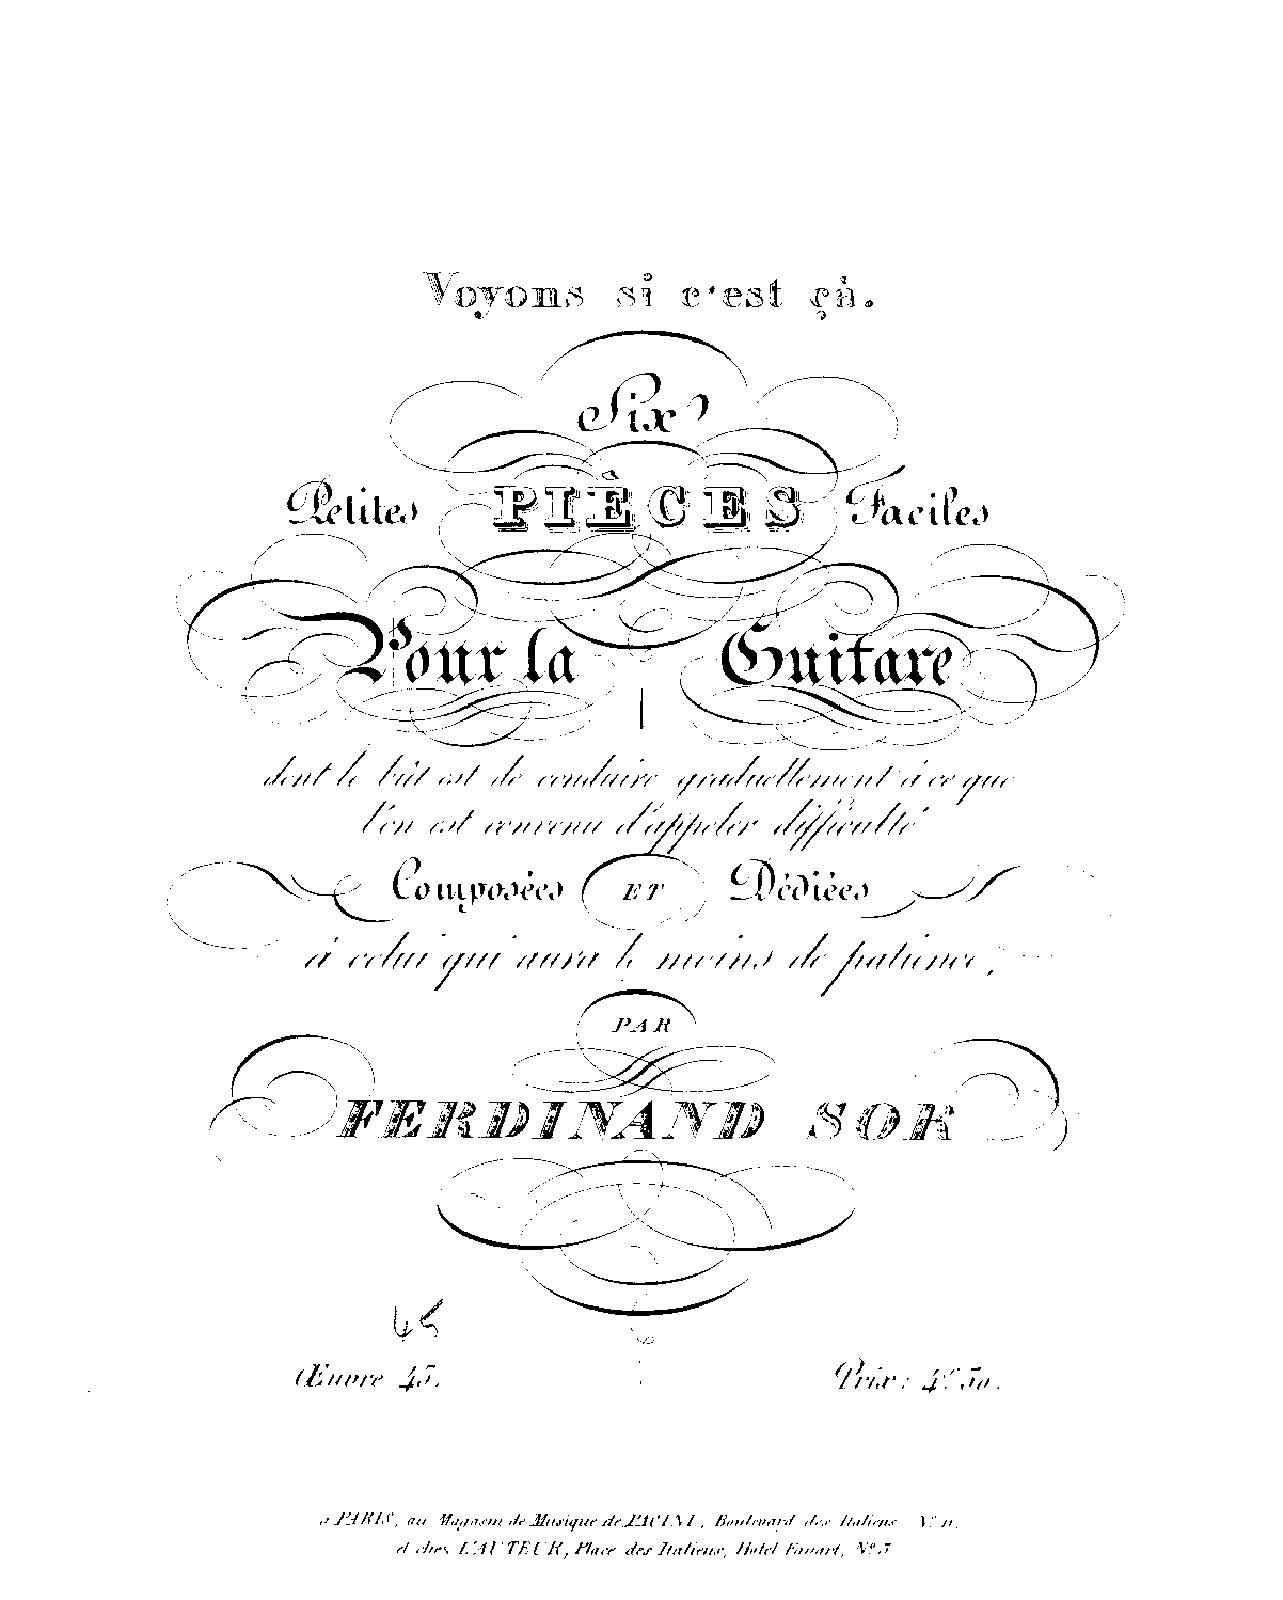 Voyons si c'est çà.
Six
Petites PIÈCES Faciles
Pour la Guitare
dont le bût est de conduire graduellement à ce que
l'on est convenu d'appeler difficulté
Composées ET Dédiées
à celui qui aura le moins de patience.
PAR
FERDINAND SOR
45
Œuvre 45. Prix: 4f 50.
à PARIS, au Magasin de Musique de PACINI, Boulevard des Italiens N° 11.
et chez L'AUTEUR, Place des Italiens, Hotel Favart, N° 5